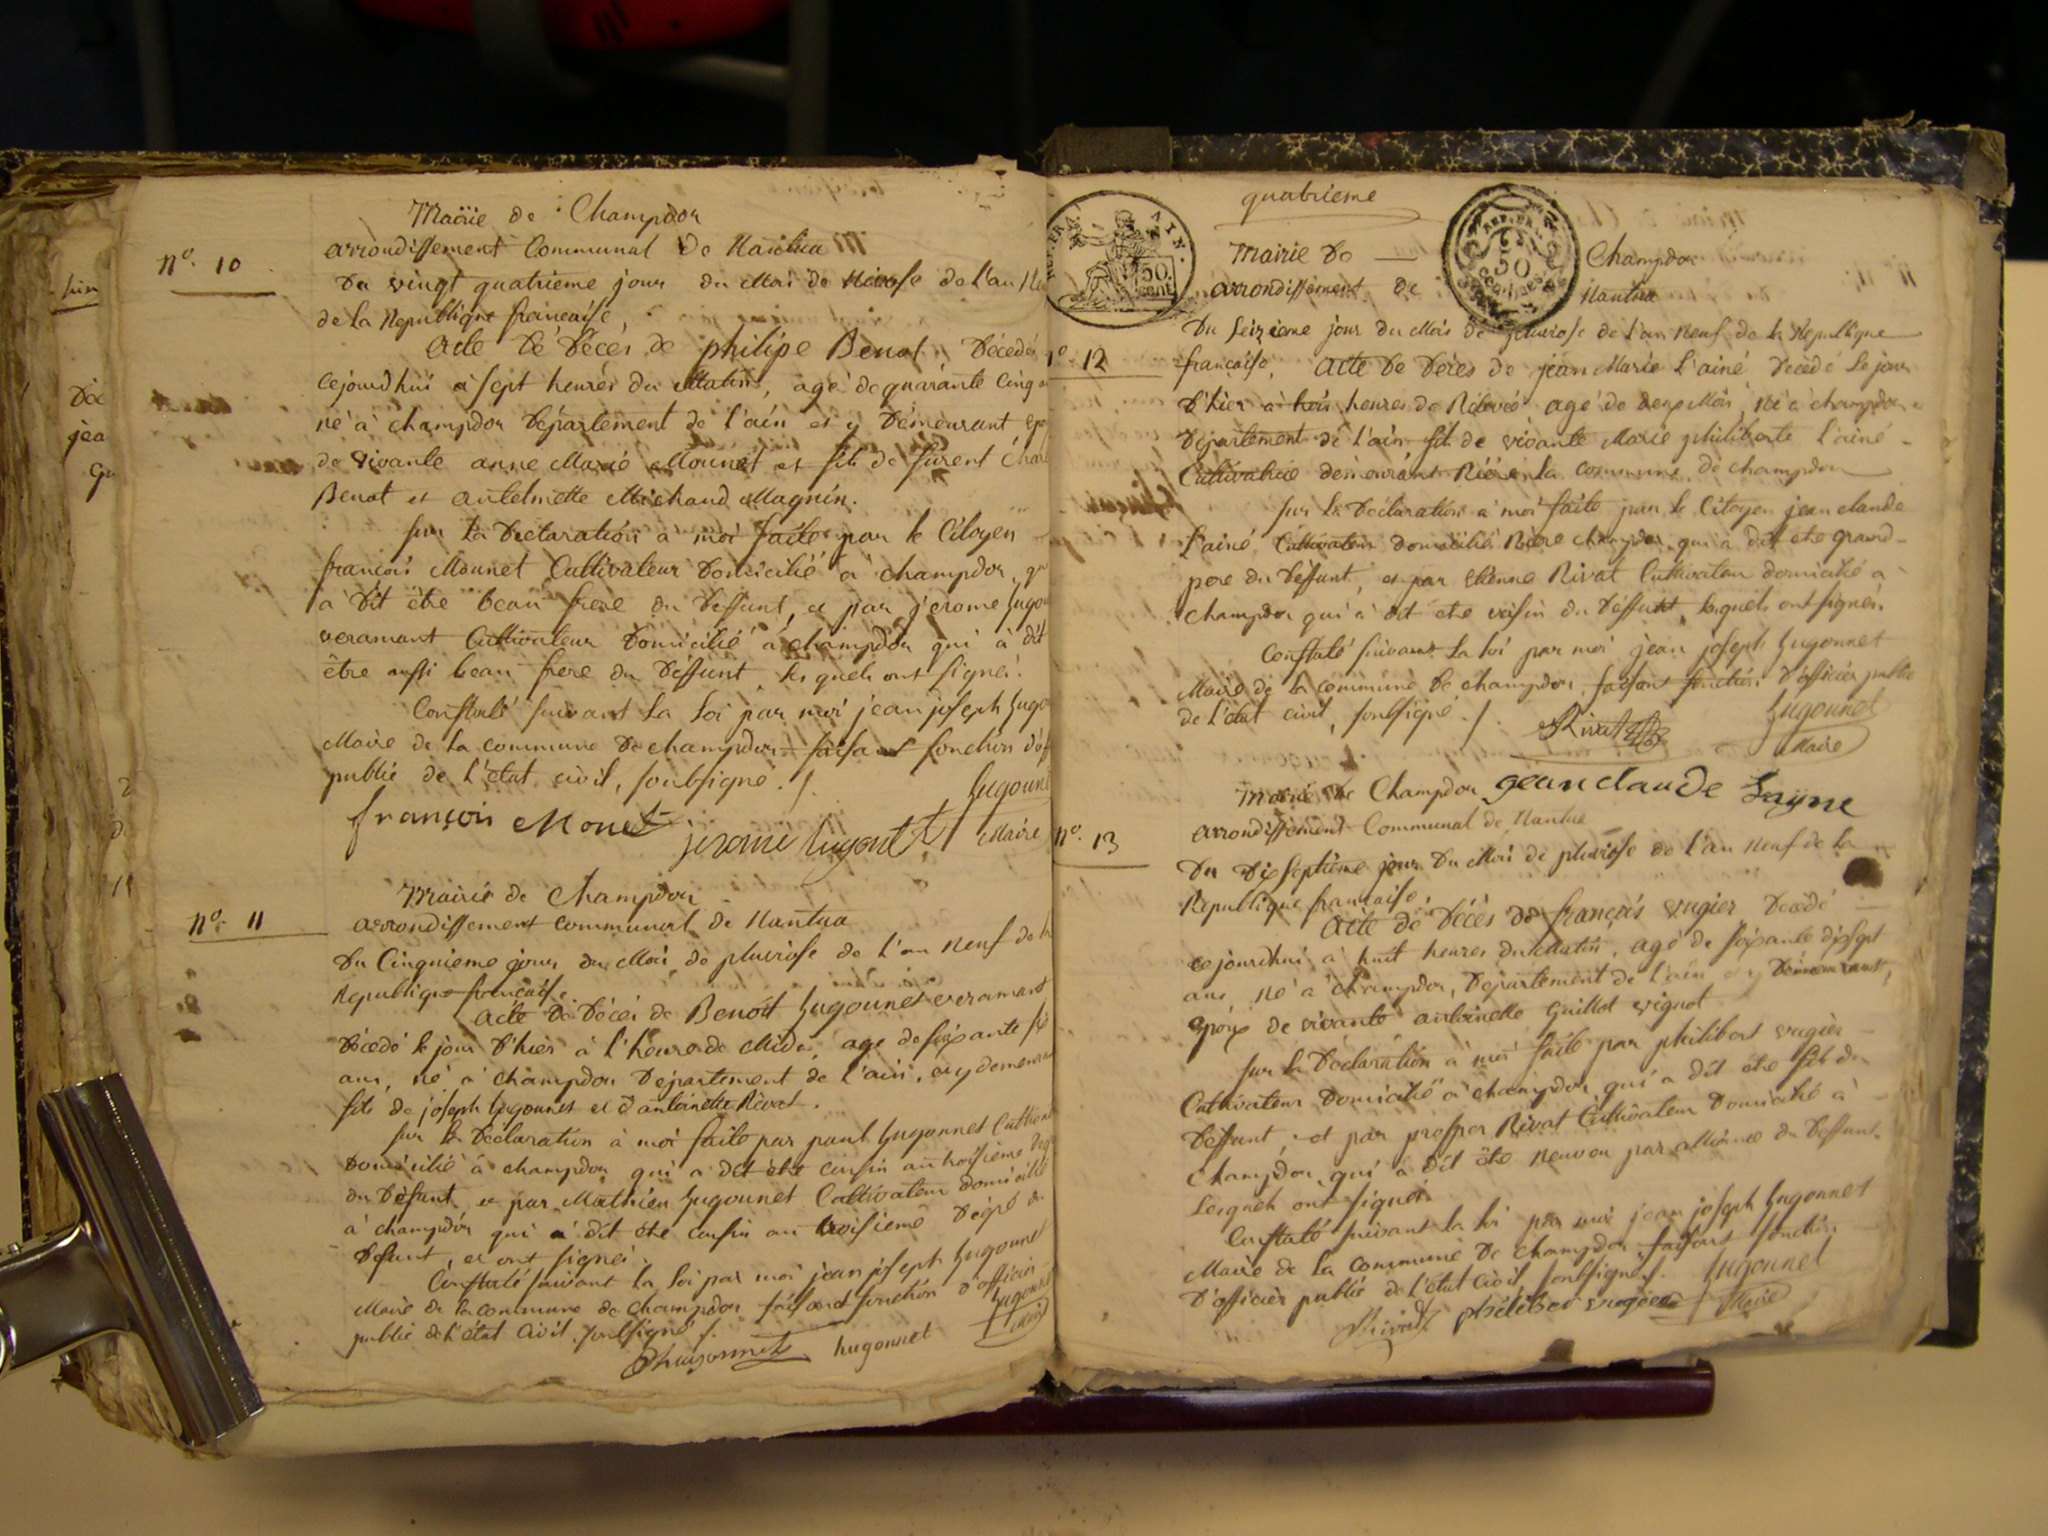 Mairie de Champdor
arrondissement Communal de Nantua
nº. 10
Du vingt quatrieme jour du Mois de Nivose de l'an
de la Republique francaise.
Acte De Décés de philipe Benot Décedé
cejourdhui à sept heures du Matin, agé de quarante cinq
né à champdor Département de l'ain et y Demeurant
de vivante anne Marie Mounet et fils de furent
Benot et antelmette Michaud Magnin.
Sur la Déclaration à moi faite par le Citoyen
françois Mounet Cultivateur Domicilié à champdor, qui
à Dit être beau frere du Deffunt, et par jerome hugon
veramant Cultivateur Domicilié à champdor qui à dit
être aussi beau frere du Deffunt, lesquels ont signés.
Constaté suivant la loi par moi jean joseph hugo
Maire de la commune De champdor faisant fonction d'of
public de l'état civil, soussigné. /.
hugonn
Maire
françois Monet jerome hugont
Mairie de Champdor
nº. 11
arrondissement communal de Nantua
Du Cinquieme jour du Mois de pluviose de l'an neuf de la
Republique francaise.
Acte De Décés de Benoit hugonnet veramant
Décedé le jour D'hier à l'heure de Midi, age de soixante six
ans, né à champdor Département de l'ain, et y demeurant
fils de joseph hugonnet et d'antoinette Rivat.
Sur la Déclaration à moi faite par paul hugonnet Cultivat
Domicilié à champdor qui a dit etre cousin au troisieme
du Defunt, et par Mathieu hugonnet Cultivateur domicilié
à champdor qui a dit etre cousin au troisieme Dégré du
Defunt, et ont signés.
Constaté suivant la loi par moi jean joseph hugonnet
Maire de la commune de champdor faisant fonction d'officier
public de l'état Civil soussigné /.
hugonnet
Maire
hugonnet
quatrieme
REP. FRA
50.
cent.
REP. FRA.
50
Mairie De Champdor
arrondissement de Nantua
Du Seizieme jour du Mois de pluviose de l'an neuf de la Republique
12
francaise. Acte De Décés de jean Marie L'ainé Décedé le jour
D'hier à trois heures de Rélevée agé de deux Mois, né à champdor
Département de l'ain fils de vivante Marie philiberte L'ainé
Cultivatrice demeurant Rière la commune de champdor
Sur la Déclaration à moi faite par le Citoyen jean claude
L'ainé Cultivateur Domicilié Rière champdor qui à dit etre grand
pere du Deffunt, et par etienne Rivat Cultivateur domicilié à
champdor qui à dit etre voisin du Déffunt, lesquels ont signés.
Constaté suivant la loi par moi jean joseph hugonnet
Maire de la commune De champdor, faisant fonction D'officier public
de l'état civil, soussigné. /.
Rivat
hugonnet
Maire
Mairie De Champdor jean claude Layne
arrondissement Communal de Nantua
nº. 13
Du Dix septieme jour Du Mois de pluviose de l'an neuf de la
Republique francaise.
Acte de Décés de françois vugier Decédé
cejourdhui à huit heures du Matin, agé de soixante dix sept
ans, né à champdor, Département de l'ain et y Demeurant,
Epoux de vivante antoinette Guillot vignot
Sur la Déclaration à moi faite par philibert vugier
Cultivateur Domicilié à champdor, qui a dit etre fils du
Deffunt, et par prosper Rivat Cultivateur Domicilié à
Champdor, qui à dit être neuveu par alliance du Deffunt
Lesquels ont signés.
Constaté suivant la loi par moi jean joseph hugonnet
Maire de la commune De champdor faisant fonction
D'officier public de l'état Civil, soussigné /. hugonnet
Rivat philiber vugier Maire